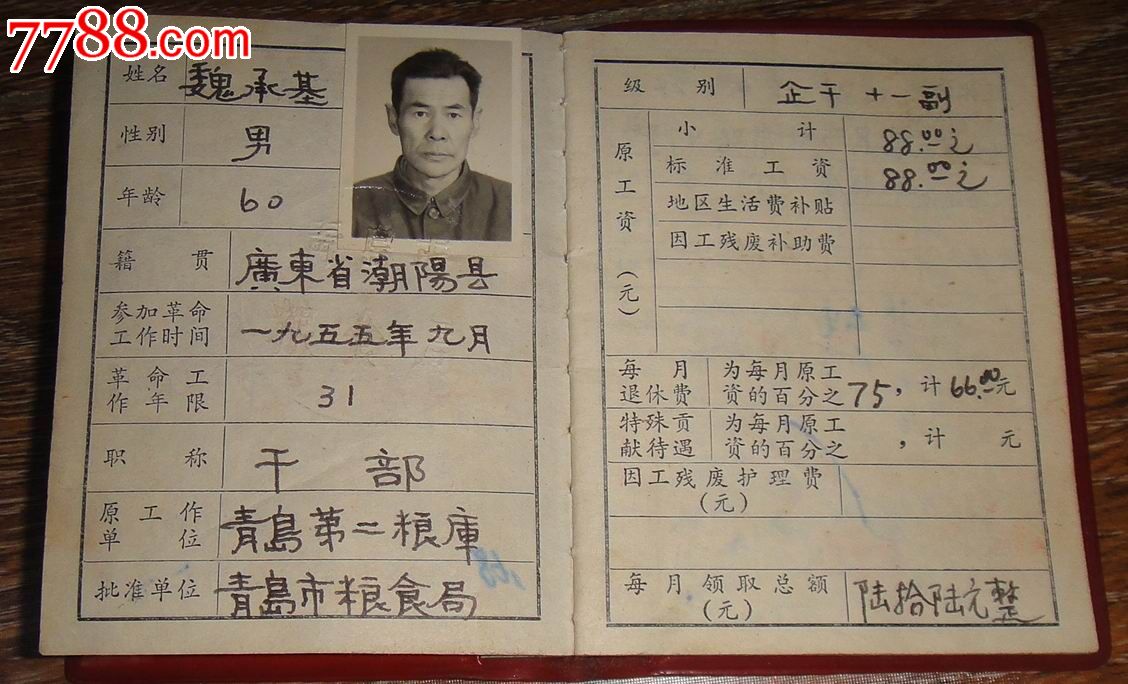 7788.com
姓名 魏承基
性别 男
年龄 60
籍贯 廣東省潮陽县
参加革命
工作时间 一九五五年九月
革命工
作年限 31
职称 干部
原工作
单位 青島第二粮庫
批准单位 青島市粮食局
级别 企干十一副
原工资(元)
小计 88.00元
标准工资 88.00元
地区生活费补贴
因工残废补助费
每月
退休费 为每月原工
资的百分之75,计66.00元
特殊贡
献待遇 为每月原工
资的百分之 ,计 元
因工残废护理费
(元)
每月领取总额
(元) 陆拾陆元整